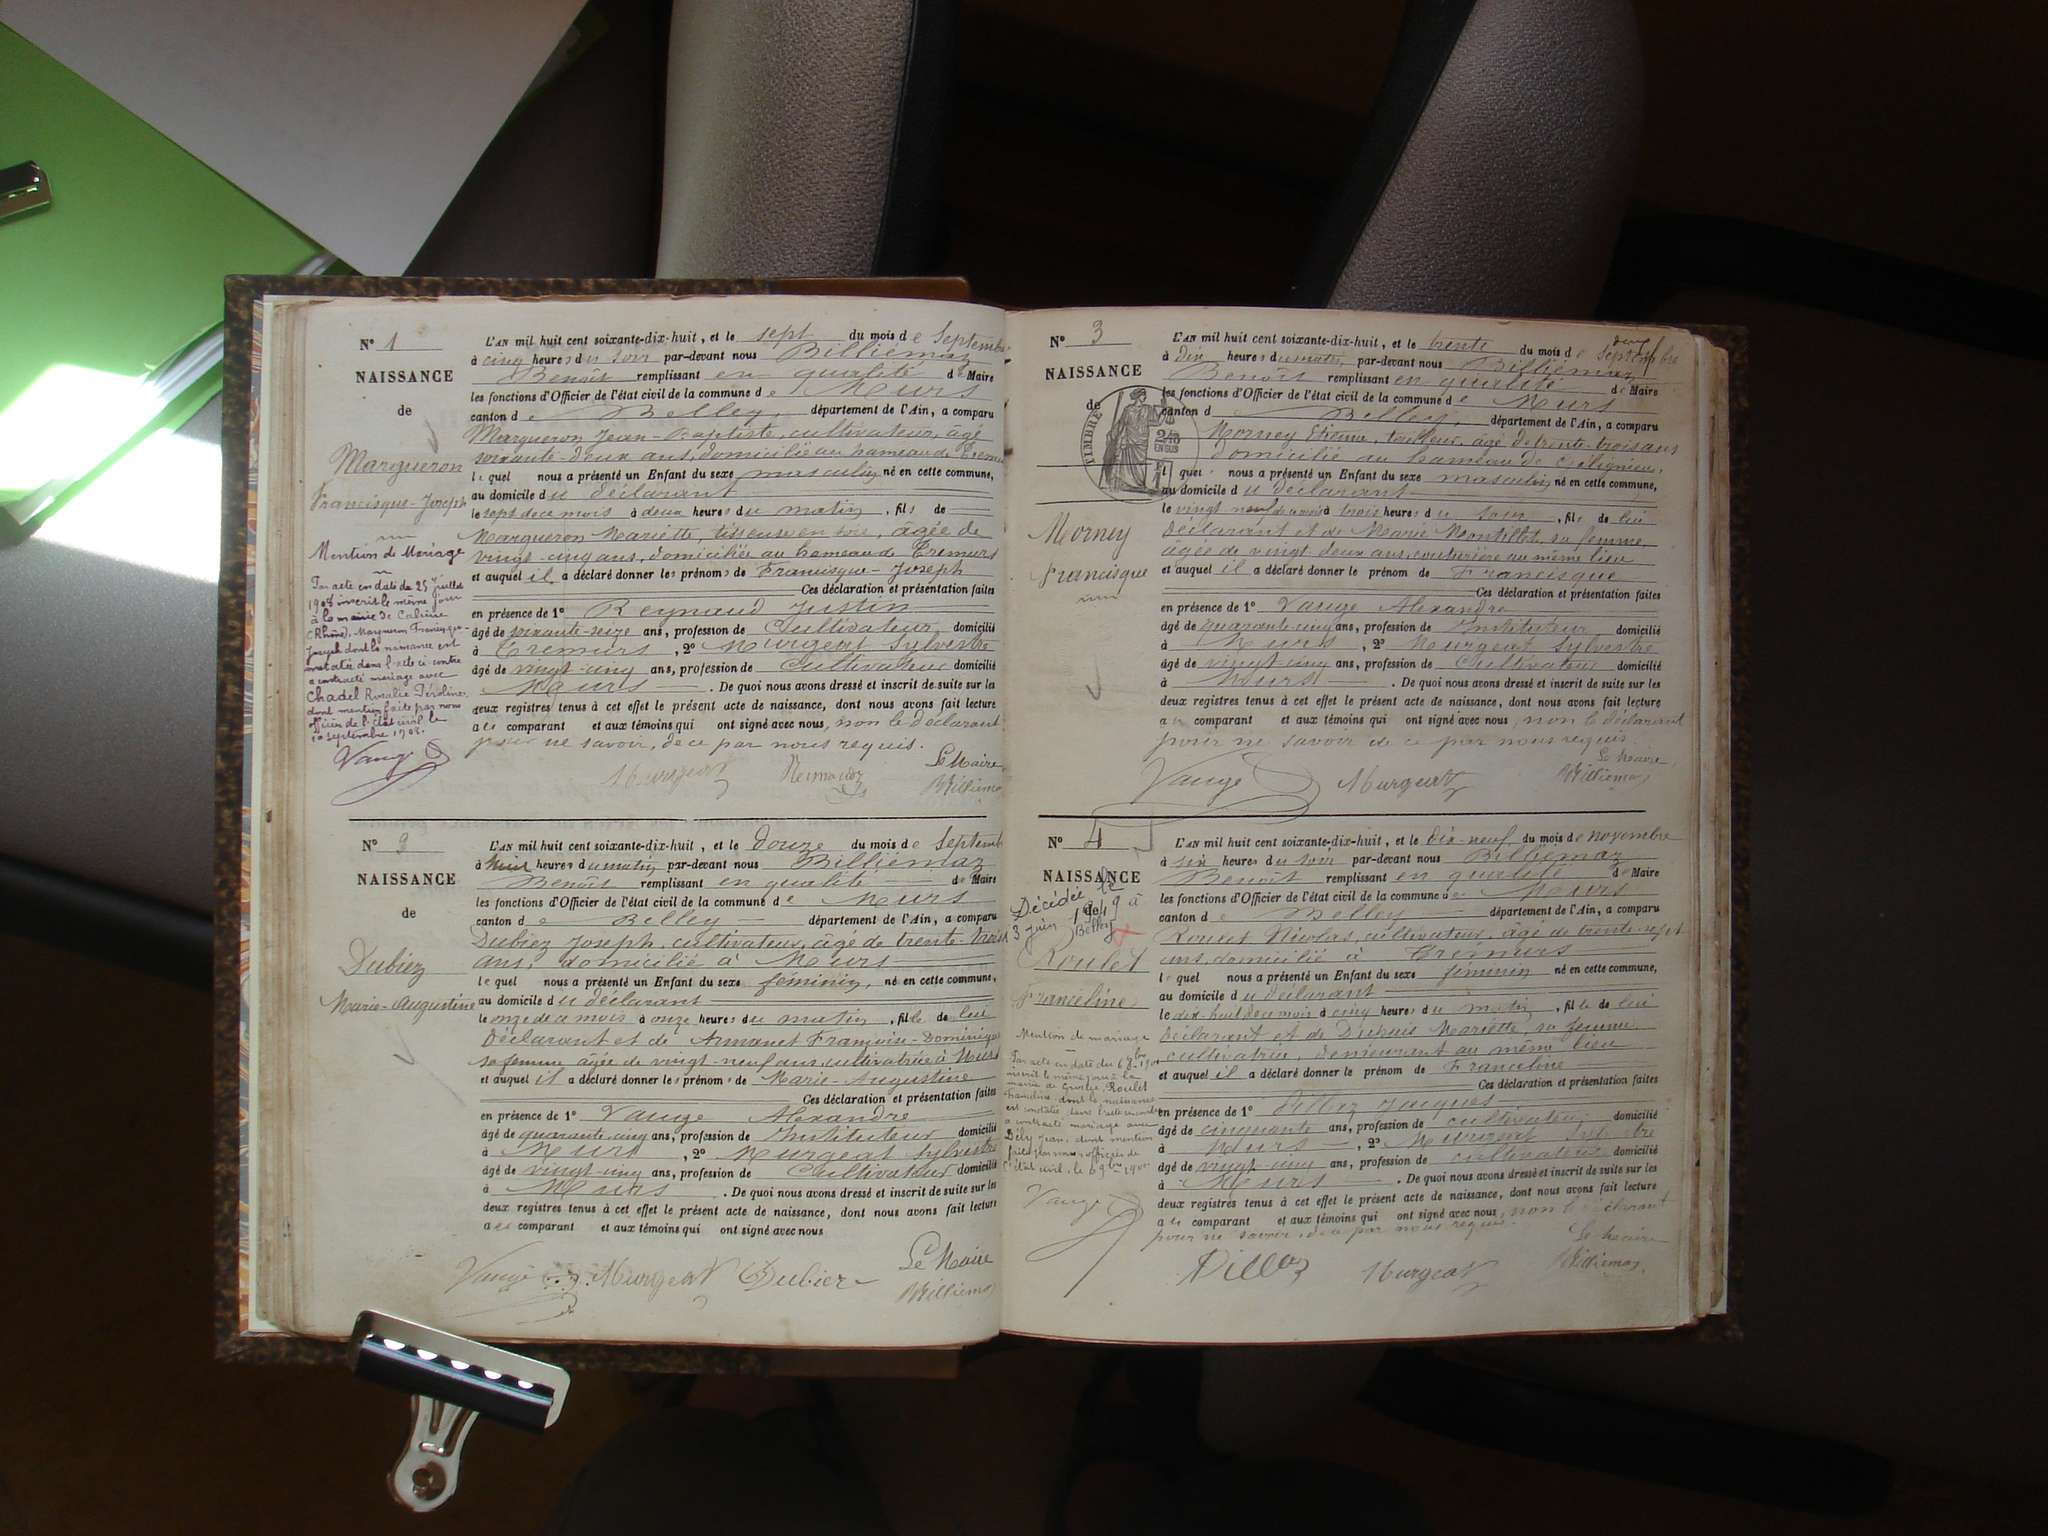 N° 1
NAISSANCE
de
Margueron
Francisque-Joseph
Mention de Mariage
Par acte en date du 25 juillet
1908 inscrit le même jour
à la mairie de Caluire
(Rhône), Margueron Francisque-
Joseph dont la naissance est
constatée dans l'acte ci contre
a contracté mariage avec
Chadel Rosalie
dont mention faite par nous
officier de l'état civil le
10 septembre 1908.
Vauge
L'AN mil huit cent soixante-dix-huit, et le sept du mois de Septembre
à cinq heures du soir par-devant nous Billiemaz
Benoît remplissant en qualité de Maire
les fonctions d'Officier de l'état civil de la commune de Murs
canton de Belley, département de l'Ain, a comparu
Margueron Jean-Baptiste, cultivateur, âgé
soixante-deux ans, domicilié au hameau de Crémurs
lequel nous a présenté un Enfant du sexe masculin né en cette commune,
au domicile du déclarant
le sept de ce mois à deux heures du matin, fils de
Margueron Mariette, tisseuse en soie, âgée de
vingt-cinq ans, domiciliée au hameau de Crémurs
et auquel il a déclaré donner les prénoms de Francisque-Joseph
Ces déclaration et présentation faites
en présence de 1° Reynaud Justin
âgé de soixante-seize ans, profession de Cultivateur domicilié
à Crémurs, 2° Murgeat Sylvestre
âgé de vingt-cinq ans, profession de Cultivateur domicilié
à Murs. De quoi nous avons dressé et inscrit de suite sur les
deux registres tenus à cet effet le présent acte de naissance, dont nous avons fait lecture
aux comparant et aux témoins qui ont signé avec nous, non le déclarant
pour ne savoir, de ce par nous requis.
Le Maire
Murgeat Billiemaz
N°
NAISSANCE
de
Dubiez
Marie-Augustine
L'AN mil huit cent soixante-dix-huit, et le douze du mois de Septembre
à huit heures du matin par-devant nous Billiemaz
Benoît remplissant en qualité de Maire
les fonctions d'Officier de l'état civil de la commune de Murs
canton de Belley département de l'Ain, a comparu
Dubiez Joseph, cultivateur, âgé de trente-trois
ans, domicilié à Murs
lequel nous a présenté un Enfant du sexe féminin, né en cette commune,
au domicile du déclarant
le onze de ce mois à onze heures du matin, fille de lui
déclarant et de Armanet Françoise-Dominique
sa femme âgée de vingt-neuf ans, cultivatrice à Murs
et auquel il a déclaré donner les prénoms de Marie-Augustine
Ces déclaration et présentation faites
en présence de 1° Vauge Alexandre
âgé de quarante-cinq ans, profession de Instituteur domicilié
à Murs, 2° Murgeat Sylvestre
âgé de vingt-cinq ans, profession de Cultivateur domicilié
à Murs. De quoi nous avons dressé et inscrit de suite sur les
deux registres tenus à cet effet le présent acte de naissance, dont nous avons fait lecture
aux comparant et aux témoins qui ont signé avec nous
Le Maire
Vauge Murgeat Dubiez Billiemaz
N° 3
NAISSANCE
de
TIMBRE
Morney
Francisque
L'AN mil huit cent soixante-dix-huit, et le trente du mois de Septembre
à dix heures du matin, par-devant nous Billiemaz
Benoît remplissant en qualité de Maire
les fonctions d'Officier de l'état civil de la commune de Murs
canton d Belley, département de l'Ain, a comparu
Morney Etienne, tailleur, âgé de trente-trois ans
domicilié au hameau de
lequel nous a présenté un Enfant du sexe masculin né en cette commune,
au domicile du déclarant
le vingt neuf de ce mois à trois heures du soir, fils de lui
déclarant et de Marie Montillet, sa femme,
âgée de vingt-deux ans, couturière au même lieu
et auquel il a déclaré donner le prénom de Francisque
Ces déclaration et présentation faites
en présence de 1° Vauge Alexandre
âgé de quarante-cinq ans, profession de Instituteur domicilié
à Murs, 2° Murgeat Sylvestre
âgé de vingt-cinq ans, profession de Cultivateur domicilié
à Murs. De quoi nous avons dressé et inscrit de suite sur les
deux registres tenus à cet effet le présent acte de naissance, dont nous avons fait lecture
au comparant et aux témoins qui ont signé avec nous, non le déclarant
pour ne savoir de ce par nous requis
Le Maire,
Vauge Murgeat Billiemaz
N° 4
NAISSANCE
de
Décédée le
3 juin 1949 à
Belley
Roulet
Franceline
Mention de mariage
Vauge
L'AN mil huit cent soixante-dix-huit, et le dix-neuf du mois de novembre
à six heures du soir par-devant nous Billiemaz
Benoît remplissant en qualité de Maire
les fonctions d'Officier de l'état civil de la commune de Murs
canton de Belley département de l'Ain, a comparu
Roulet Nicolas, cultivateur, âgé de trente-sept
ans, domicilié à Crémurs
lequel nous a présenté un Enfant du sexe féminin né en cette commune,
au domicile du déclarant
le dix-huit de ce mois à cinq heures du matin, fille de lui
déclarant et de Dupuis Mariette, sa femme
cultivatrice, demeurant au même lieu
et auquel il a déclaré donner le prénom de Franceline
Ces déclaration et présentation faites
en présence de 1° Jacques
âgé de cinquante ans, profession de cultivateur domicilié
à Murs, 2° Murgeat Sylvestre
âgé de vingt-cinq ans, profession de cultivateur domicilié
à Murs. De quoi nous avons dressé et inscrit de suite sur les
deux registres tenus à cet effet le présent acte de naissance, dont nous avons fait lecture
aux comparant et aux témoins qui ont signé avec nous, non le déclarant
pour ne savoir, de ce par nous requis.
Le Maire
Murgeat Billiemaz